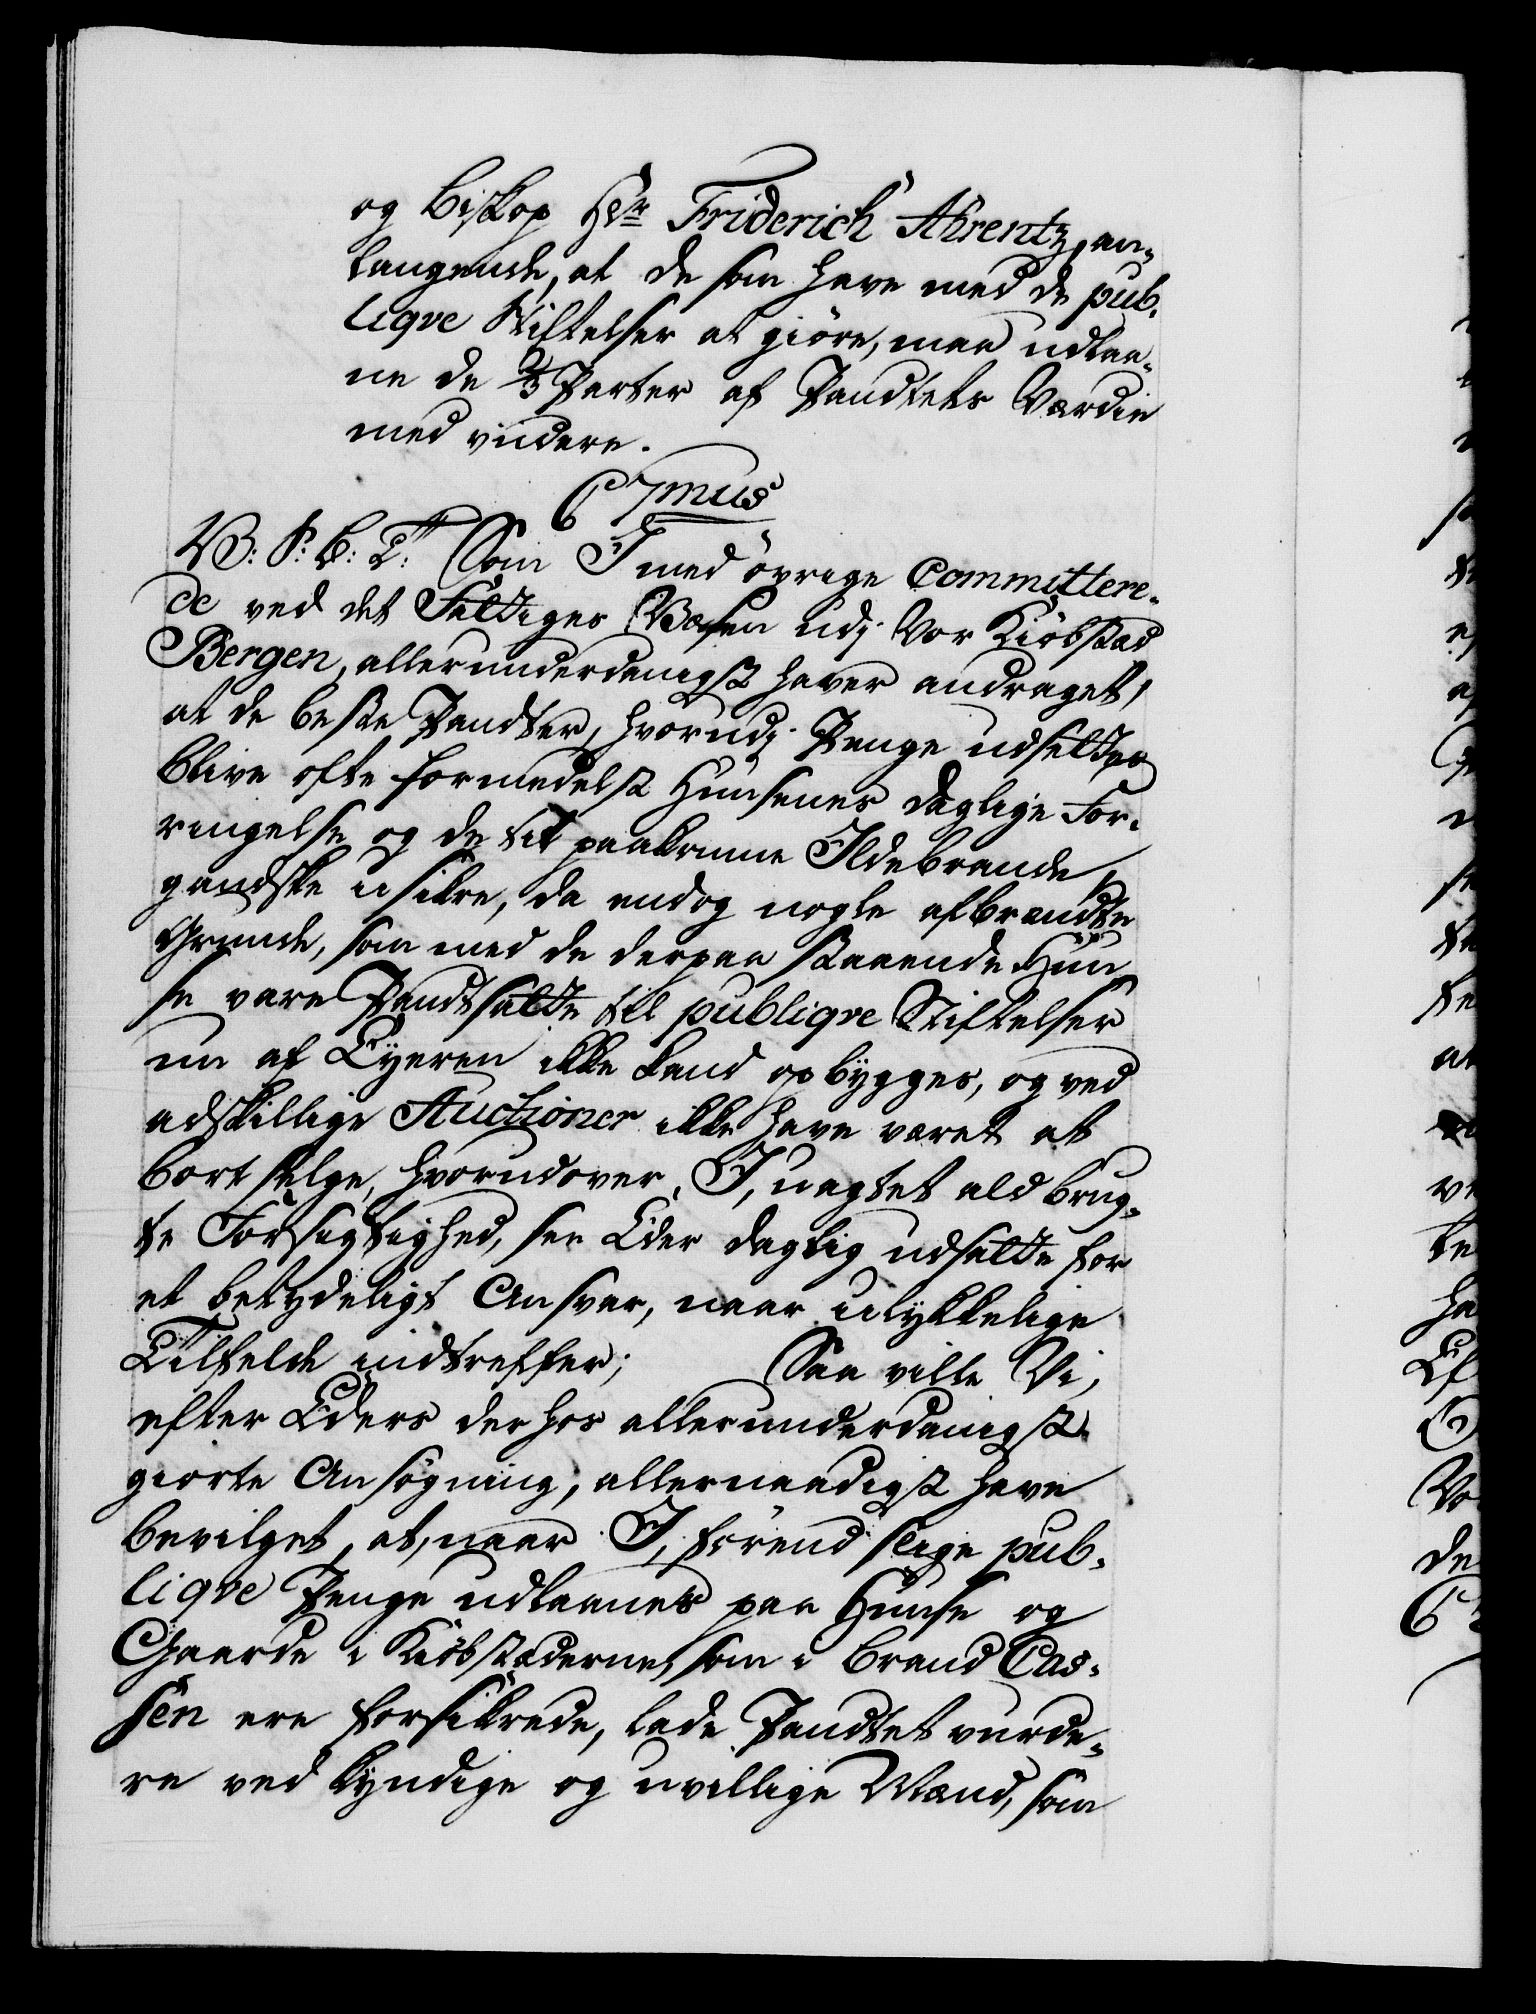 og Biskop Hr Friderich Ahrentz, an-
langende, at de som have med de pub-
liqve Stiftelser at giöre, maa udlaa-
ne de 2/3 Parter af Pandtets Værdie
med viidere.
C 7mus
V: S: B: T: Som I med övrige Committere-
de ved det Fattiges Væsen udj Vor Kiöbstæd
Bergen, allerunderdanigst haver andraget,
at de beste Pandter, hvorudj Penge udsættes
blive ofte formedelst Huusenes daglige For-
ringelse og de tit paakomne Ildebrande,
gandske usikre, da endog nogle afbrændte
Grunde, som med de derpaa staaende Huu-
se vare Pandtsatte til publiqve Stiftelser
nu af Eyeren ikke kand opbygges, og ved
adskillige Auctioner ikke have været at
bortselge, hvorudover, I, uagtet ald brug-
te Forsigtighed, see Eder daglig udsatte for
et betydeligt Ansvar, naar ulykkelige
Tilfelde indtreffer; Saa ville Vi,
efter Eders derhos allerunderdanigst
giorte Ansögning, allernaadigst have
bevilget, at, naar I, förend slige pub-
liqve Penge udlaanes paa Huuse og
Gaarde i Kiöbstæderne, som i Brand Cas-
sen ere forsikrede, lade Pandtet vurde-
re ved kyndige og uvillige Mænd, som